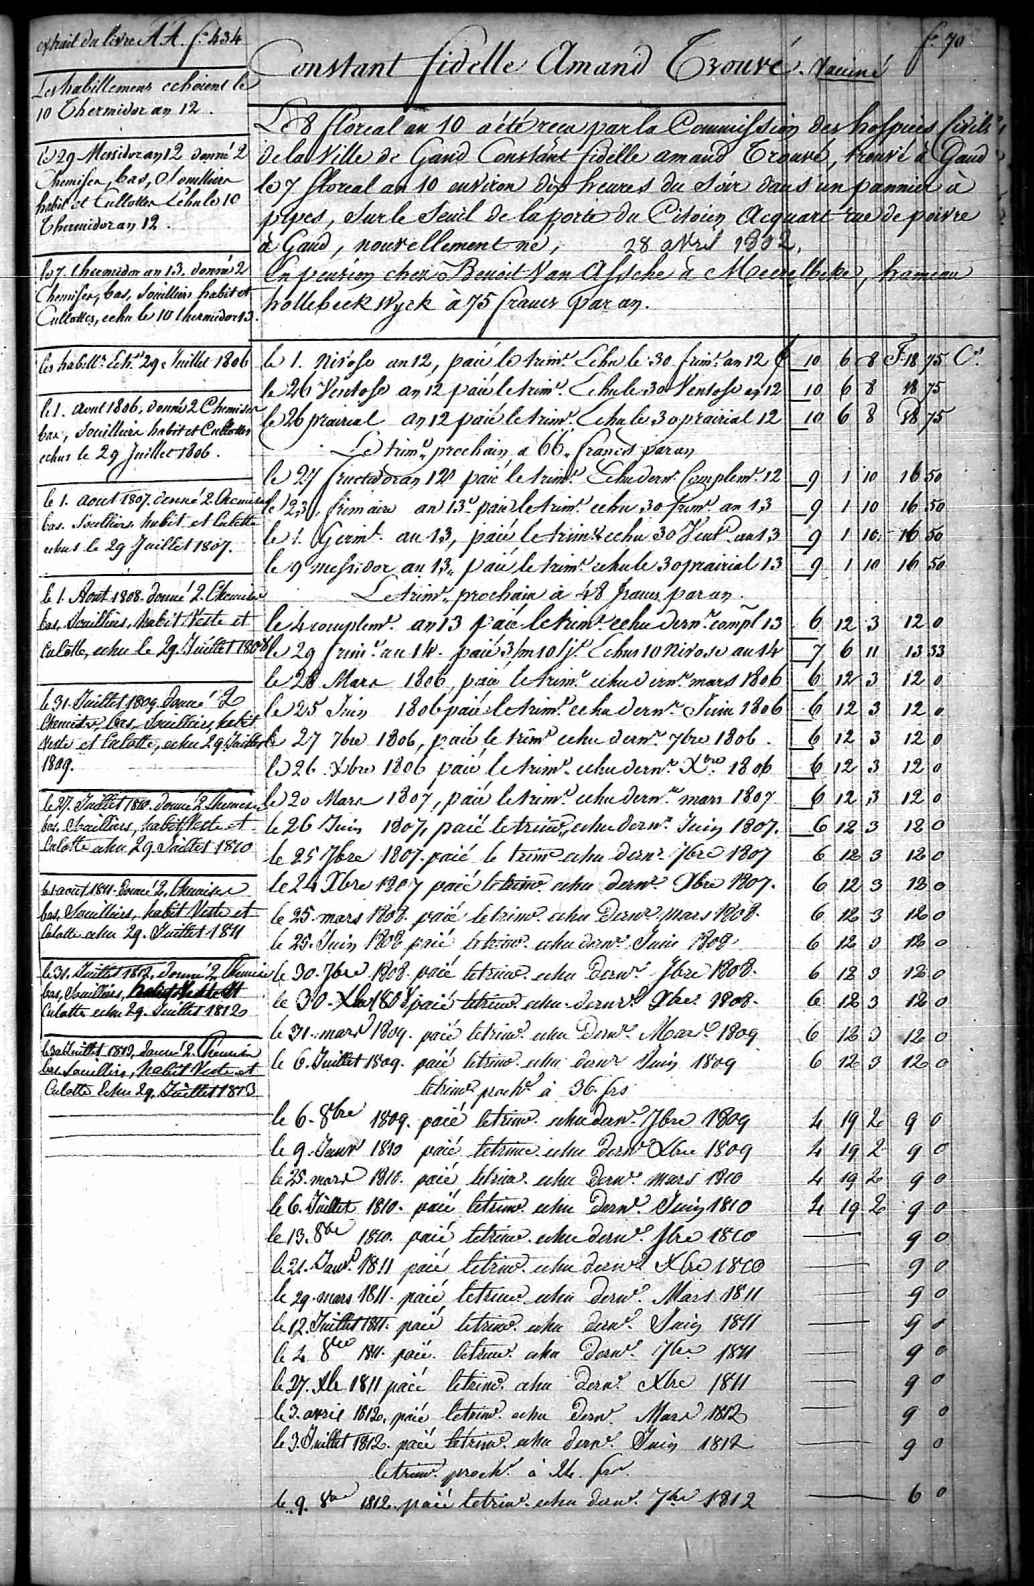 extrait du livre AA. f° 434
f° 70
Constant fidelle Amand Trouvé. Vacciné
Les habillemens echoient le
10 Thermidor an 12.
le 29 Messidor an 12 donné 2
Chemises, bas, Souilliers
habit et Cullottes Echu le 10
Thermidor an 12.
le 7 thermidor an 13. donné 2
Chemises, bas, Souilliers habit et
Cullottes, echu le 10 thermidor 13.
les habill.s Ech.t 29 Juillet 1806
le 1. aout 1806, donné 2 Chemises
bas, Souilliers habit et Cullottes
echus le 29 Juillet 1806.
le 1. aout 1807. donné 2 Chemises
bas. Souilliers habit et Culotte
echus le 29 Juillet 1807.
le 1. Aout 1808. donné 2. Chemises
bas, Souilliers, habit Veste et
Culotte, echu le 29. Juillet 1808
le 31. Juillet 1809 donné 2
Chemises, bas, Souilliers, habit
Veste et Culotte, echu 29. Juillet
1809.
le 27. Juillet 1810. donné 2 Chemises
bas, Souilliers, habit Veste et
Culotte echu 29. Juillet 1810
le 1 aout 1811. donné 2, Chemises
bas, Souilliers, habit Veste et
Culotte echu 29. Juillet 1811
le 31. Juillet 1812, donné 2 Chemises
bas, Souilliers, habit Veste et
Culotte echu 29. Juillet 1812
Juillet 1813, donné 2. Chemises
bas, Souilliers, habit Veste et
Culotte Echu 29. Juillet 1813
Le 8 floreal an 10 a été recu par la Commission des hospices Civils
de la Ville de Gand Constant fidelle amand Trouvé, trouvé à Gand
le 7 floreal an 10 environ dix heures du Soir dans un pannier à
pipes, Sur le Seuil de la porte du Citoien Acquart rue de poivre
à Gand, nouvellement né, 28 avril 1802.
En pension chez Benoit Van Assche à Meirelbeke, hameau
hollebeek Wyck à 75 francs par an.
le 1. Nivose an 12, paié le trim.e Echu le 30 frim.e an 12 £ 10 6 8 F. 18 75 C.s
le 26 Ventose an 12 paié le trim.e Echu le 30 Ventose an 12 10 6 8 18 75
le 26 prairial an 12 paié le trim.e Echu le 30 prairial 12 10 6 8 18 75
Le trim.e prochain à 66. francs par an
le 27 fructidor an 12 paié le trim.e Echu dern.r Complem.re 12 9 1 10 16 50
le 23, frimaire an 13. paié le trim.e echu 30 frim.e an 13 9 1 10 16 50
le 1. Germ.l an 13, paié le trim.e echu 30 Vent.e an 13 9 1 10 16 50
le 9 messidor an 13. paié le trim.e echu le 30 prairial 13 9 1 10 16 50
Le trim.e prochain à 48 francs par an.
le 4 complem.re an 13 paié le trim.e echu dern.r compl 13 6 12 3 12 0
le 29 frim.e an 14. paié 3/m 10 j.rs Echus 10 Nivose an 14 7 6 11 13 33
le 28 Mars 1806, paié le trim.e echu dern.r mars 1806 6 12 3 12 0
le 25 Juin 1806 paié le trim.e echu dern.r Juin 1806 6 12 3 12 0
le 27 7bre 1806, paié le trim.e echu dern.r 7bre 1806. 6 12 3 12 0
le 26 Xbre 1806 paié le trim.e echu dern.r Xbre 1806 6 12 3 12 0
le 20 Mars 1807, paié le trim.e echu dern.r mars 1807 6 12 3 12 0
le 26 Juin 1807, paié le trim.e echu dern.r Juin 1807. 6 12 3 12 0
le 25 7bre 1807. paié le trim.e echu dern.r 7bre 1807 6 12 3 12 0
le 24 Xbre 1807 paié le trim.e echu dern.r Xbre 1807. 6 12 3 12 0
le 25. mars 1808. paié le trim.e echu dern.r mars 1808. 6 12 3 12 0
le 25. Juin 1808 paié le trim.e echu dern.r Juin 1808. 6 12 3 12 0
le 30. 7bre 1808. paié le trim.e echu dern.r 7bre 1808. 6 12 3 12 0
le 30. Xbre 1808 paié le trim.e echu dern.r Xbre 1808. 6 12 3 12 0
le 31. mars 1809. paié le trim.e echu dern.r Mars 1809 6 12 3 12 0
le 6. Juillet 1809. paié le trim.e echu dern.r Juin 1809 6 12 3 12 0
le trim.e proch.n à 36. frs
le 6. 8bre 1809. paié le trim.e echu dern.r 7bre 1809 4 19 2 9 0
le 9. Janv.r 1810 paié le trim.e echu dern.r Xbre 1809 4 19 2 9 0
le 25. mars 1810. paié le trim.e echu dern.r mars 1810 4 19 2 9 0
le 6. Juillet 1810. paié le trim.e echu dern.r Juin 1810 4 19 2 9 0
le 13. 8bre 1810. paié le trim.e echu dern.r 7bre 1810 9 0
le 21. Janv.r 1811 paié le trim.e echu dern.r Xbre 1810 9 0
le 29. mars 1811. paié le trim.e echu dern.r Mars 1811 9 0
le 12. Juillet 1811. paié le trim.e echu dern.r Juin 1811 9 0
le 2. 8bre 1811. paié le trim.e echu dern.r 7bre 1811 9 0
le 27. Xbre 1811 paié le trim.e echu dern.r Xbre 1811 9 0
le 3. avril 1812. paié le trim.e echu dern.r Mars 1812 9 0
le 3. Juillet 1812. paié le trim.e echu dern.r Juin 1812 9 0
le trim.e proch.n à 24. frs.
le 9. 8bre 1812. paié le trim.e echu dern.r 7bre 1812 6 0